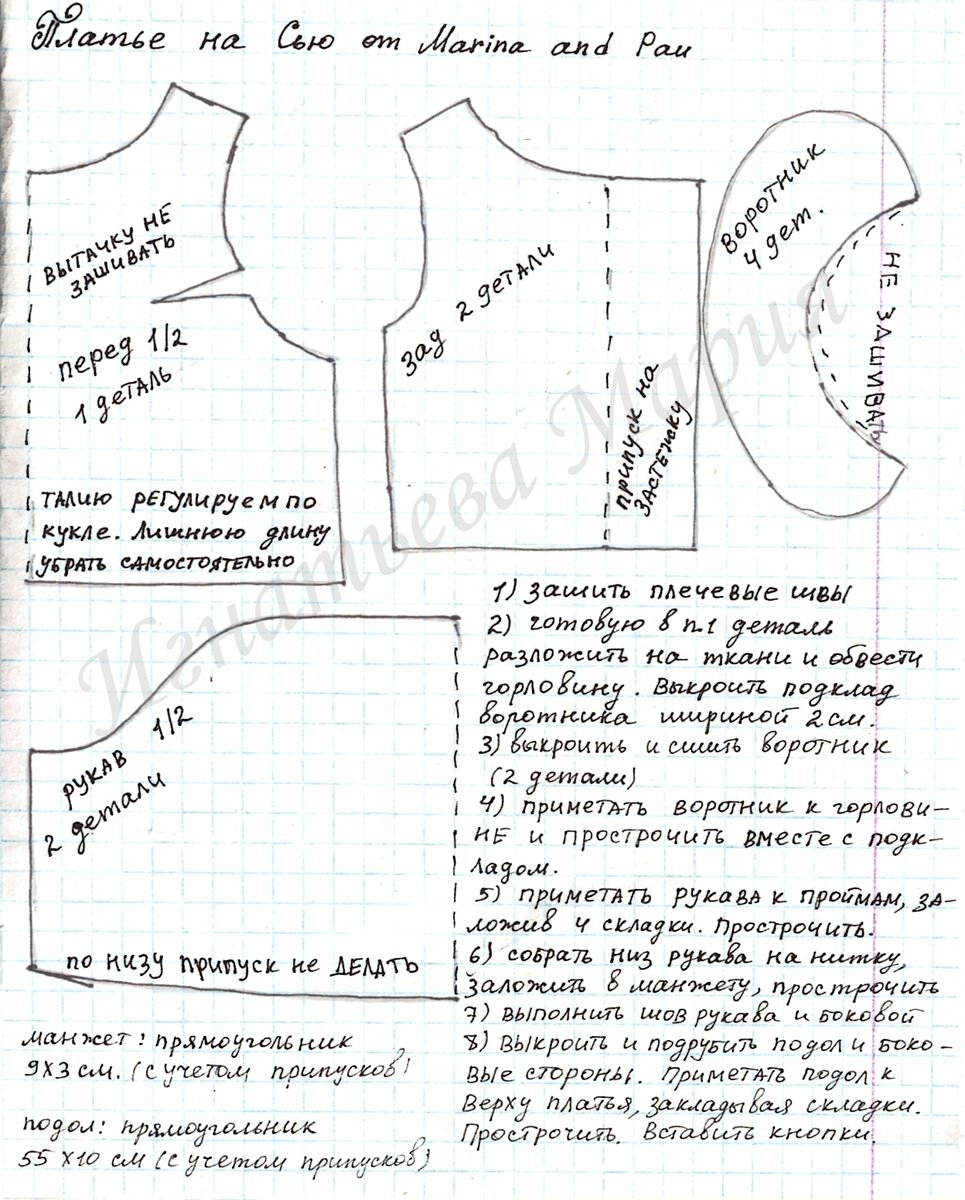 Платье на Сью от Marina and Pau
ВЫТАЧКУ НЕ
ЗАШИВАТЬ
перед 1/2
1 деталь
ТАЛИЮ РЕГУЛИРУЕМ ПО
КУКЛЕ. ЛИШНЮЮ ДЛИНУ
УБРАТЬ САМОСТОЯТЕЛЬНО
зад 2 детали
припуск на
застежку
ВОРОТНИК
4 дет.
НЕ ЗАШИВАТЬ
Игнатьева Мария
РУКАВ 1/2
2 детали
по низу припуск не ДЕЛАТЬ
манжет: прямоугольник
9х3 см. (с учетом припусков)
подол: прямоугольник
55 х10 см (с учетом припусков)
1) зашить плечевые швы
2) готовую в п.1 деталь
разложить на ткани и обвести
горловину. Выкроить подклад
воротника шириной 2 см.
3) выкроить и сшить воротник
(2 детали)
4) приметать воротник к горлови-
не и прострочить вместе с подк-
ладом.
5) приметать рукава к проймам, за-
ложив 4 складки. Прострочить.
6) собрать низ рукава на нитку,
заложить в манжету, прострочить
7) выполнить шов рукава и боковой
8) выкроить и подрубить подол и боко-
вые стороны. Приметать подол к
верху платья, закладывая складки.
Прострочить. Вставить кнопки.